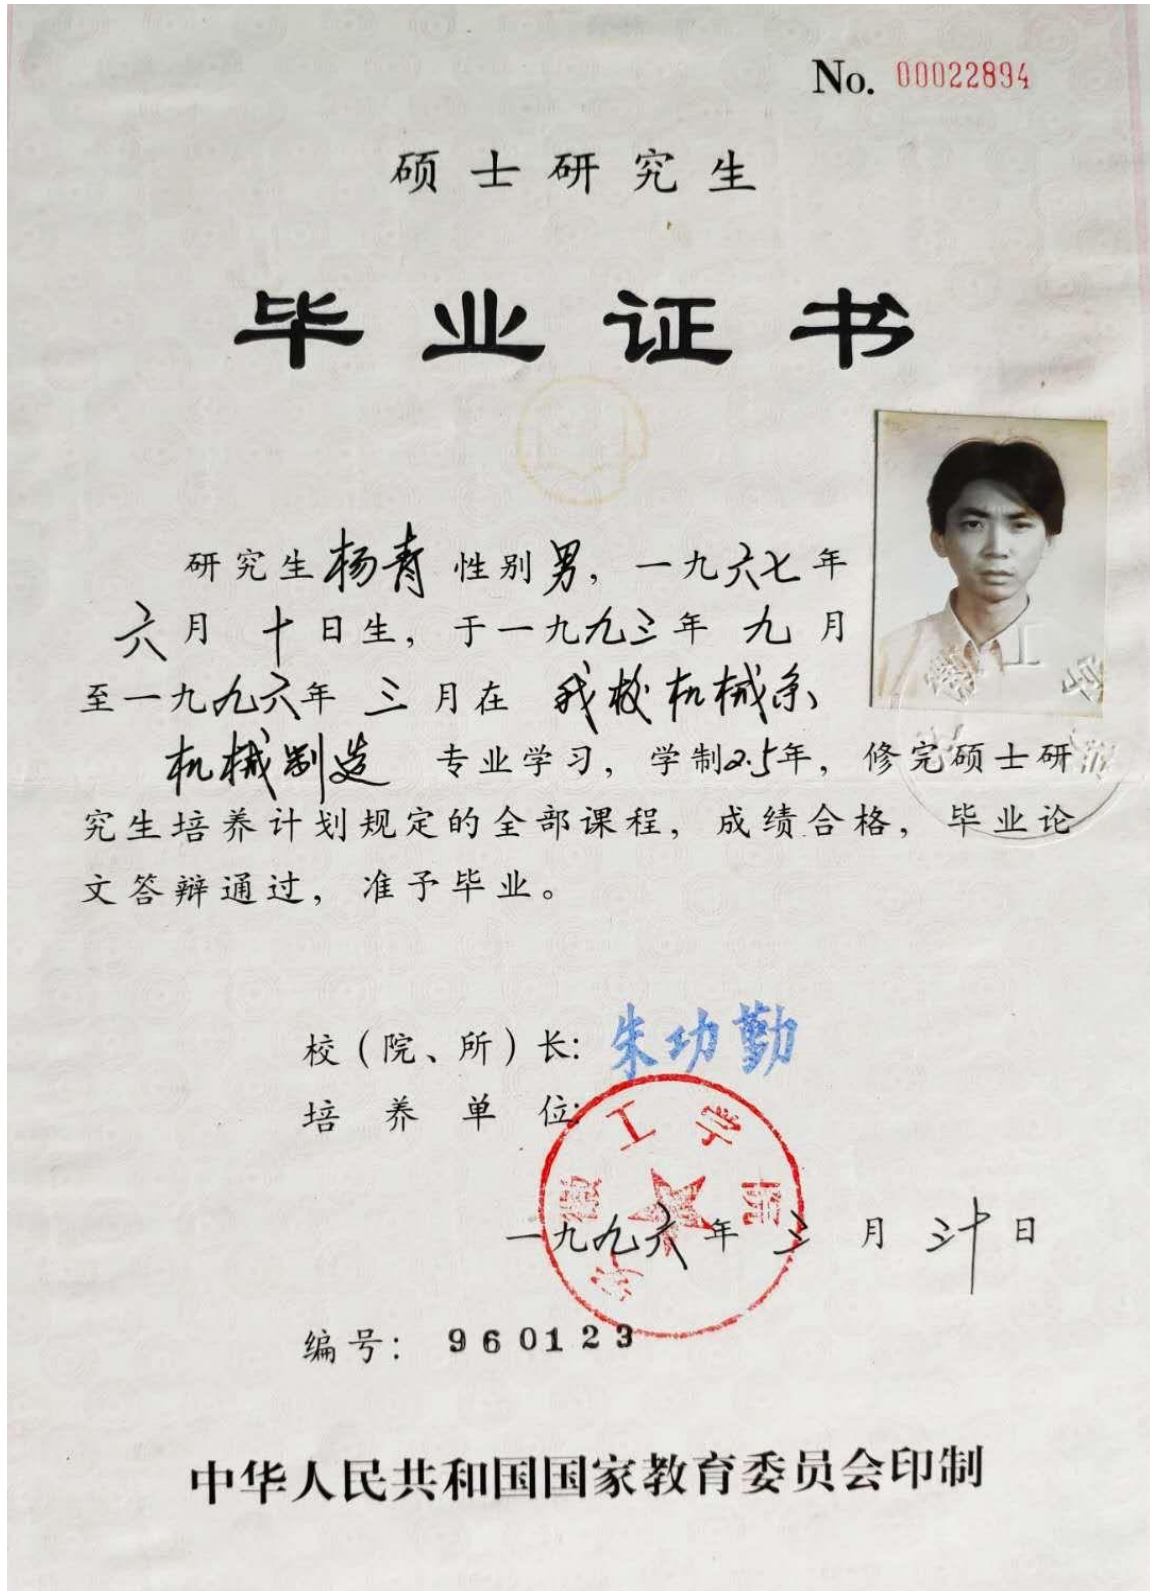 No. 00022894
硕士研究生
毕业证书
研究生杨青 性别男，一九六七年
六月十日生，于一九九三年九月
至一九九六年三月在 我校机械系
机械制造 专业学习，学制2.5年，修完硕士研
究生培养计划规定的全部课程，成绩合格，毕业论
文答辩通过，准予毕业。
校（院、所）长：朱功勤
培养单位：
安徽工学院
一九九六年三月三十日
编号：960123
中华人民共和国国家教育委员会印制